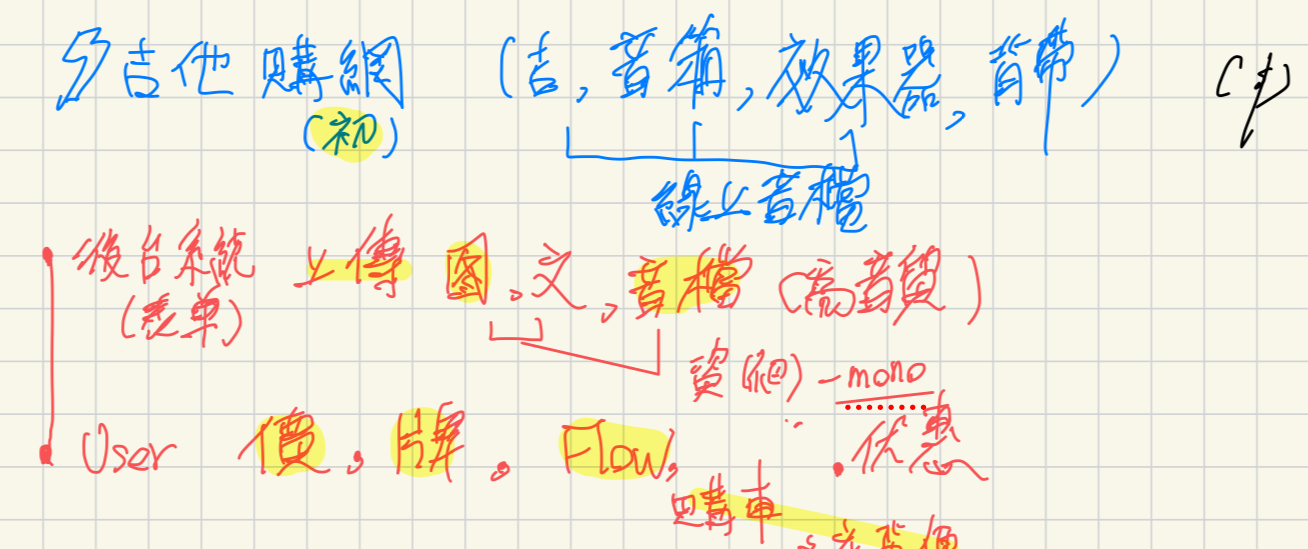 吉他購網 (吉, 音箱, 效果器, 背帶)
(初)
線上音檔
後台系統 上傳 图, 文, 音檔 (高音質)
(表單)
資(爬) - mono
User 價, 牌, Flow, . 优惠
購車